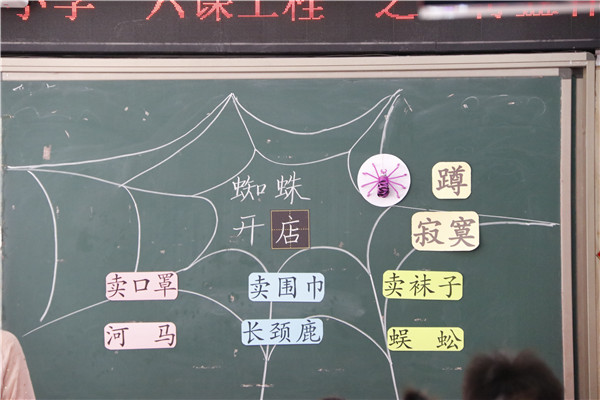 小学“六课工程”之
蜘蛛
开店
蹲
寂寞
卖口罩
卖围巾
卖袜子
河马
长颈鹿
蜈蚣